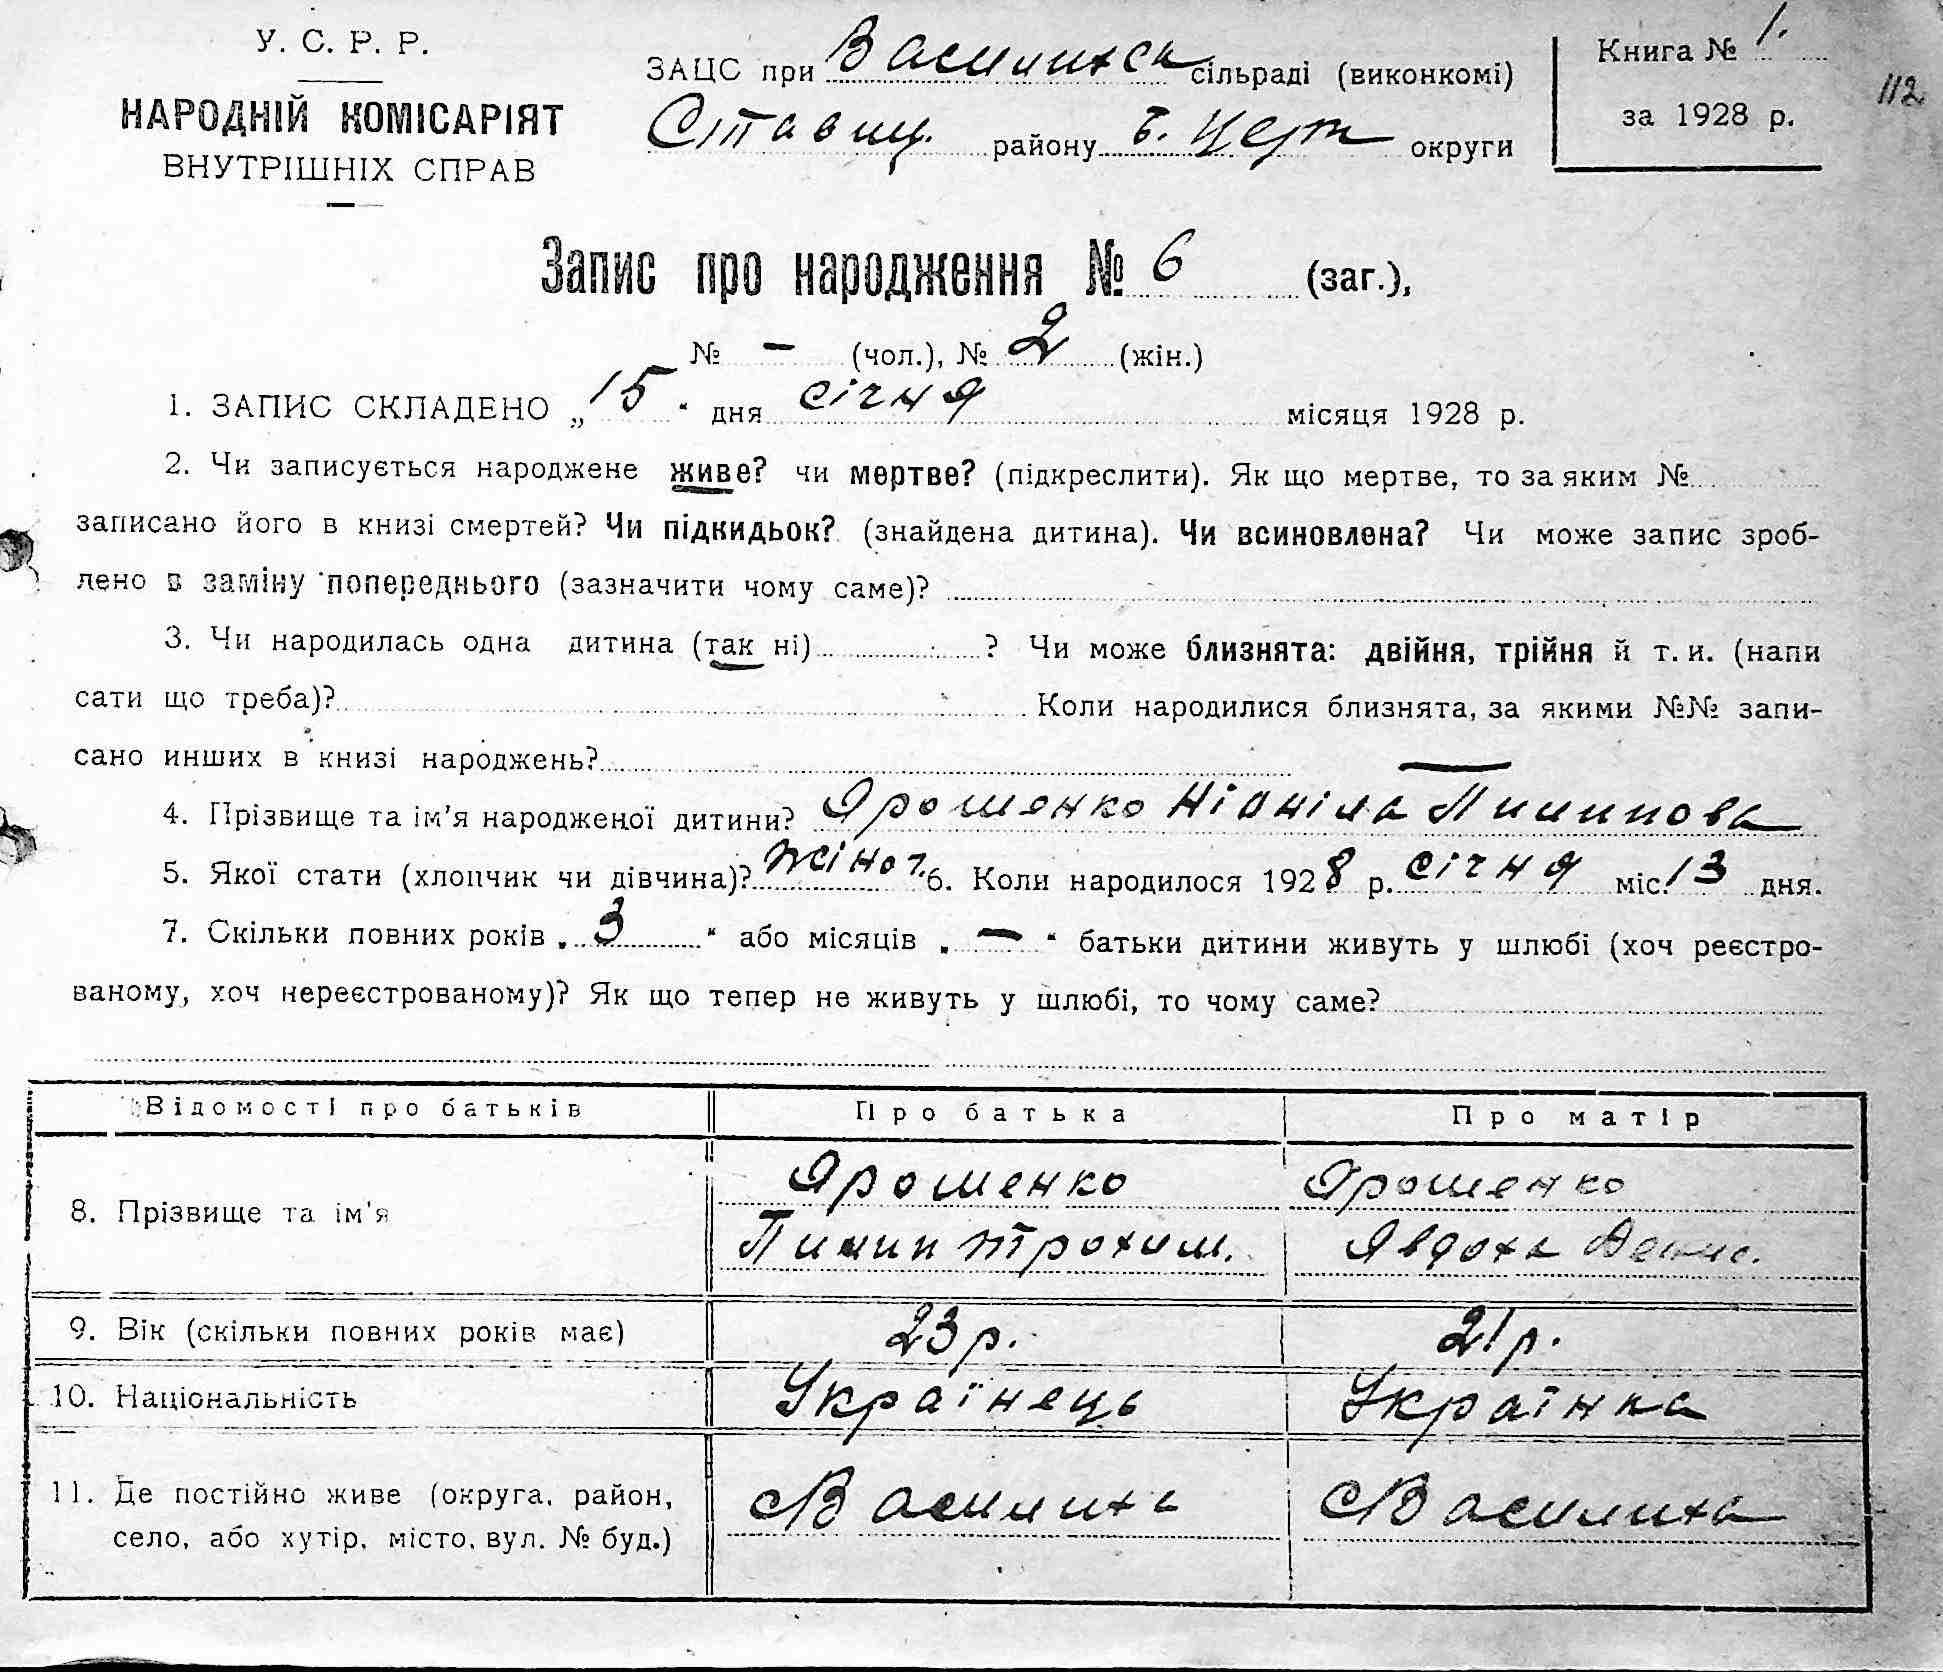 У. С. Р. Р.
НАРОДНІЙ КОМІСАРІЯТ
ВНУТРІШНІХ СПРАВ
ЗАЦС при Василихск сільраді (виконкомі)
Ставищ. району Б. Церк округи
Книга № 1.
за 1928 р.
112
Запис про народження № 6 (заг.),
№ - (чол.), № 2 (жін.)
1. ЗАПИС СКЛАДЕНО „15“ дня січня місяця 1928 р.
2. Чи записується народжене живе? чи мертве? (підкреслити). Як що мертве, то за яким №
записано його в книзі смертей? Чи підкидьок? (знайдена дитина). Чи всиновлена? Чи може запис зроб-
лено в заміну попереднього (зазначити чому саме)?
3. Чи народилась одна дитина (так ні) ? Чи може близнята: двійня, трійня й т. и. (напи
сати що треба)? Коли народилися близнята, за якими №№ запи-
сано инших в книзі народжень? —
4. Прізвище та ім'я народженої дитини? Ярошенко Ніоніла Пилипова
5. Якої статі (хлопчик чи дівчина)? жіноч. 6. Коли народилося 1928 р. січня міс. 13 дня.
7. Скільки повних років „3“ або місяців „—“ батьки дитини живуть у шлюбі (хоч реєстро-
ваному, хоч нереєстрованому)? Як що тепер не живуть у шлюбі, то чому саме?
Відомості про батьків Про батька Про матір
8. Прізвище та ім'я
Ярошенко Ярошенко
Пилип Трохим. Явдоха Денис.
9. Вік (скільки повних років має) 23 р. 21 р.
10. Національність Українець Українка
11. Де постійно живе (округа, район,
село, або хутір, місто, вул. № буд.)
с Василиха с Василиха